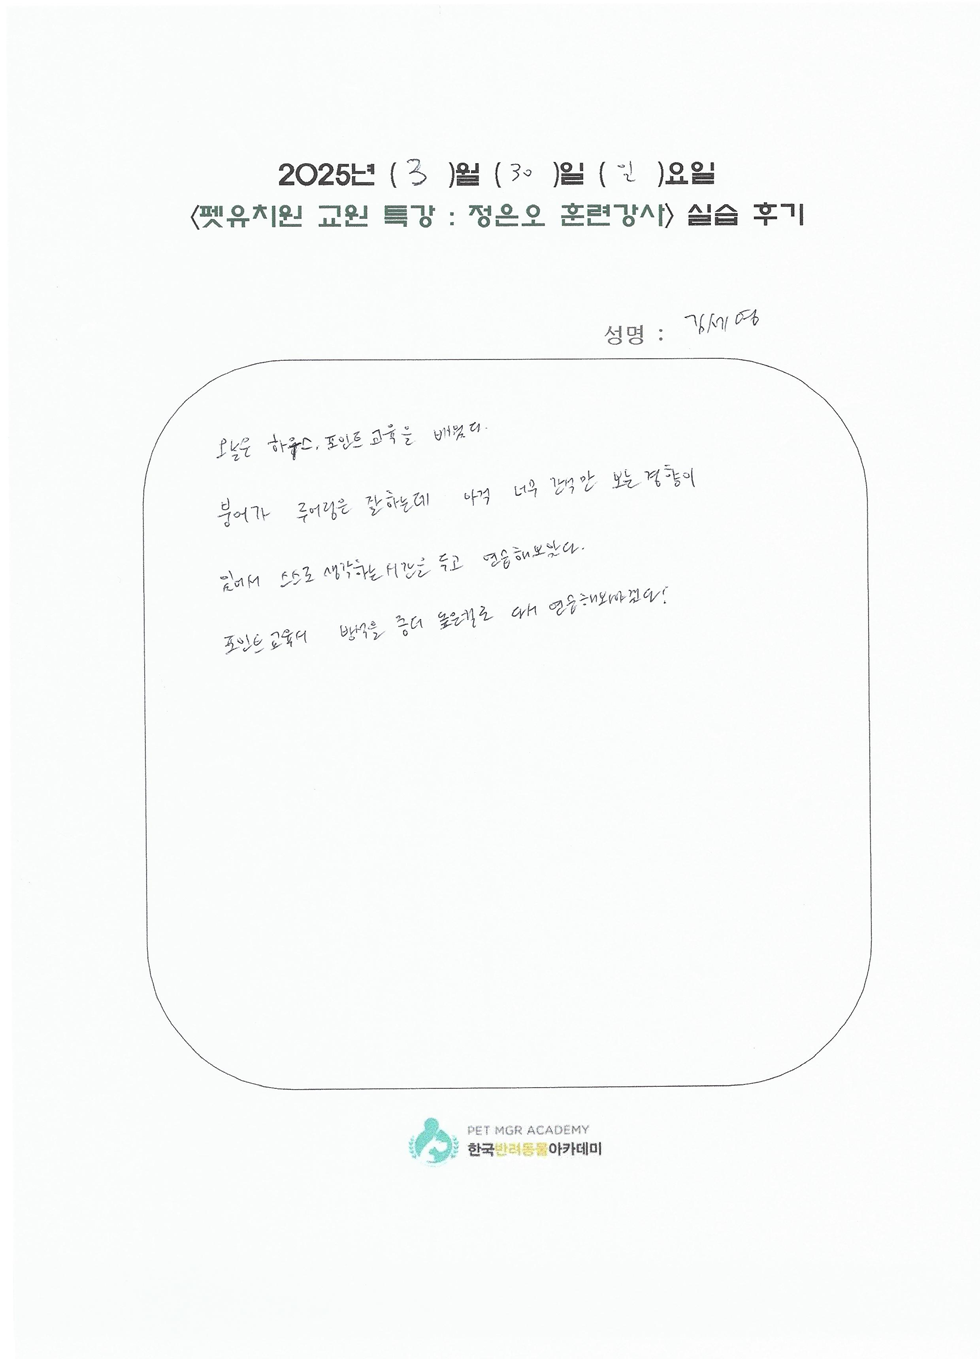 2025년 ( 3 )월 ( 30 )일 ( 일 )요일
<펫유치원 교원 특강 : 정은오 훈련강사> 실습 후기
성명 : 김세영
오늘은 하우스, 포인트 교육을 배웠다.
붕어가 루어링은 잘하는데 아직 너무 간식만 보는 경향이
있어서 스스로 생각하는 시간을 두고 연습해보았다.
포인트 교육시 방석을 좀더 높은걸로 다시 연습해봐야겠다!
PET MGR ACADEMY
한국반려동물아카데미